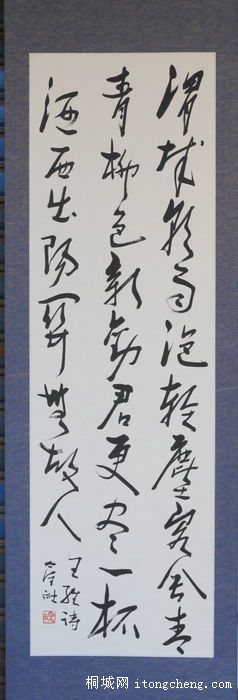 渭城朝雨浥軽塵客舍青
青柳色新勧君更尽一杯
酒西出陽関無故人
王維詩
桐城网 itongcheng.com